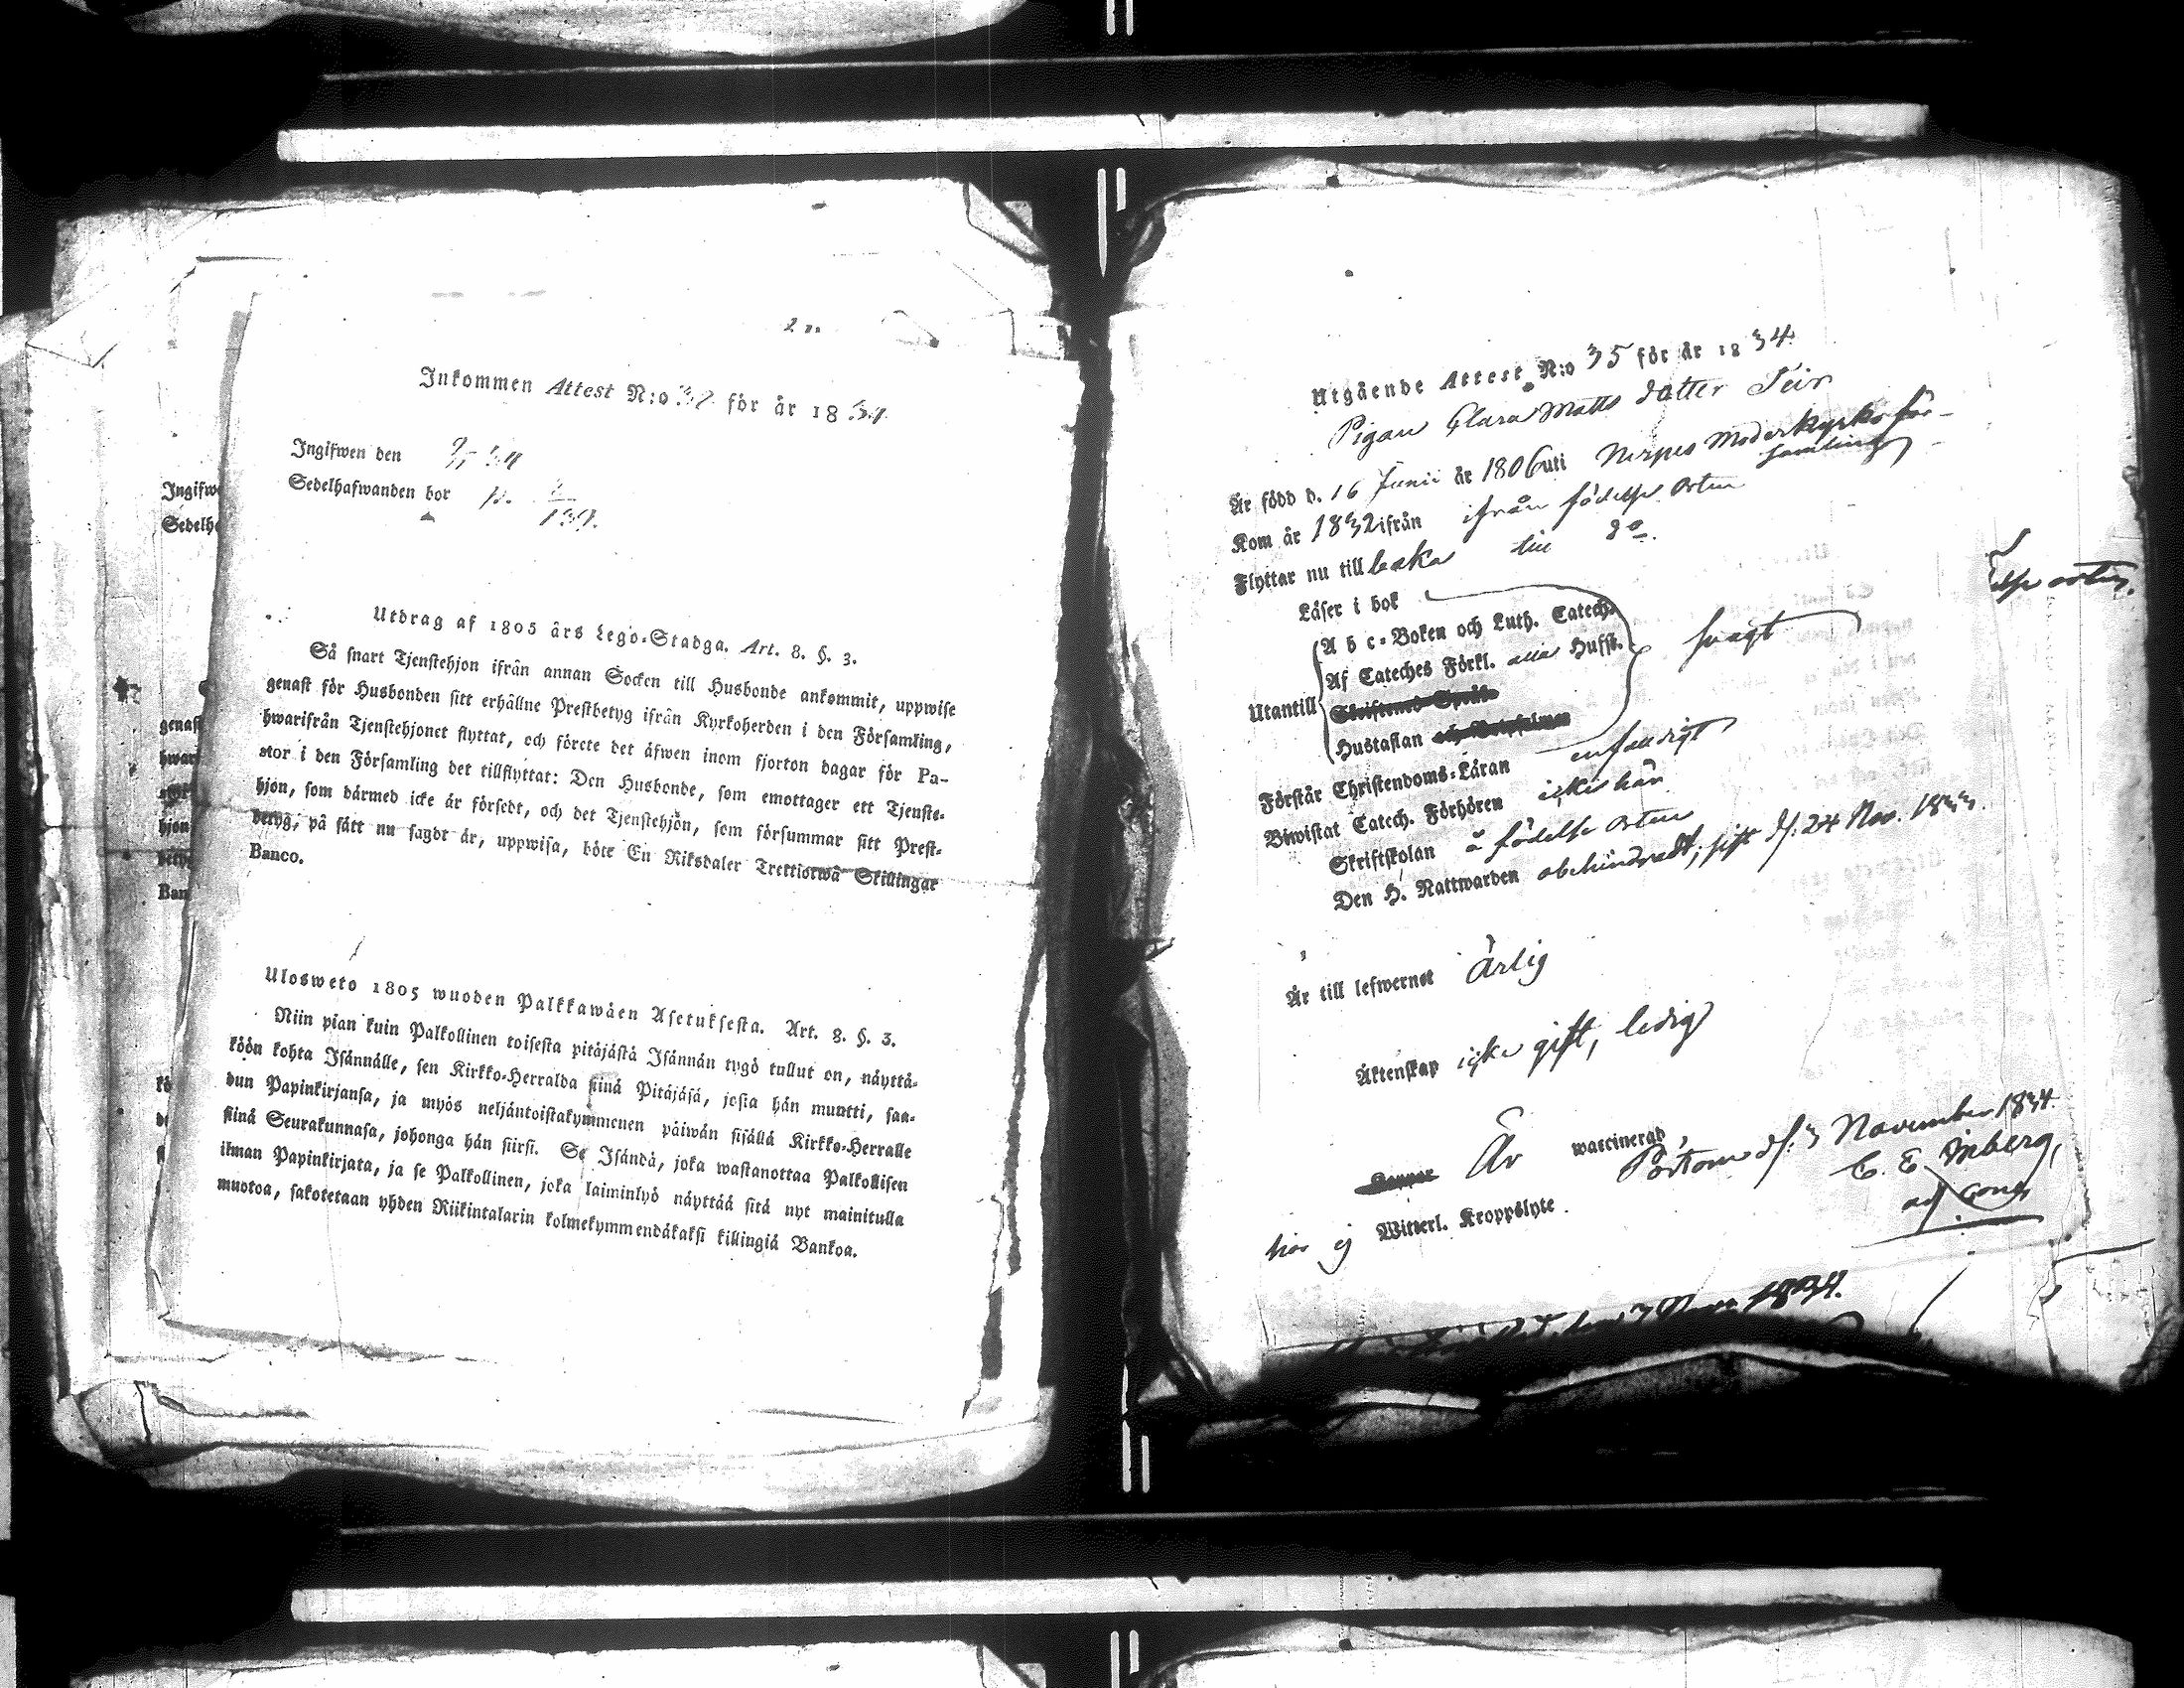 Inkommen Attest N:o 32 för år 1834
Ingifwen den
Sedelhafwanden bor p.
139.
Utdrag af 1805 års Lego-Stadga. Art. 8. §. 3.
Så snart Tjenstehjon ifrån annan Socken till Husbonde ankommit, uppwise
genast för Husbonden sitt erhållne Prestbetyg ifrån Kyrkoherden i den Församling,
hwarifrån Tjenstehjonet flyttat, och förete det äfwen inom fjorton dagar för Pa-
stor i den Församling det tillflyttat: Den Husbonde, som emottager ett Tjenste-
hjon, som därmed icke är försedt, och det Tjenstehjon, som försummar sitt Prest-
betyg, på sätt nu sagdt är, uppwisa, böte En Riksdaler Trettiotwå Skillingar
Banco.
Ulosweto 1805 wuoden Palkkawäen Asetuksesta. Art. 8. §. 3.
Niin pian kuin Palkollinen toisesta pitäjästä Isännän tygö tullut on, näyttä-
köön kohta Isännälle, sen Kirkko-Herralda siinä Pitäjäsä, josta hän muutti, saa-
dun Papinkirjansa, ja myös neljäntoistakymmenen päiwän sisällä Kirkko-Herralle
siinä Seurakunnasa, johonga hän siirsi. Se Isändä, joka wastanottaa Palkollisen
ilman Papinkirjata, ja se Palkollinen, joka laiminlyö näyttää sitä nyt mainitulla
muotoa, sakotetaan yhden Riikintalarin kolmekymmendäkaksi killingiä Bankoa.
Ingifwe
Sedelha
genast
hwari
hjon
Ban
Utgående Attest N:o 35 för år 1834
Pigan Clara Matts dotter Teir
Är född d. 16 Junii år 1806 uti Nerpes Moderkyrko för-
samling
Kom år 1832 ifrån ifrån födelse orten
Flyttar nu till baka till do.
Läser i bok
Utantill
A b c-Boken och Luth. Catech.
Af Cateches Förkl. alla Hufst.
svagt
Skriftenes Språk
Hustaflan
Förstår Christendoms-Läran enfaldigt
Biwistat Catech. Förhören icke här
Skriftskolan å födelse orten
Den H. Nattwarden obehindradt, sist d. 24 Nov. 1833.
Är till lefwernet ärlig
Äktenskap icke gift, ledig
Är waccinerad,
har ej Witterl. Kroppslyte
Pörtom d. 3 November 1834.
C. E. Inberg,
adj Cong
orten.
1834.